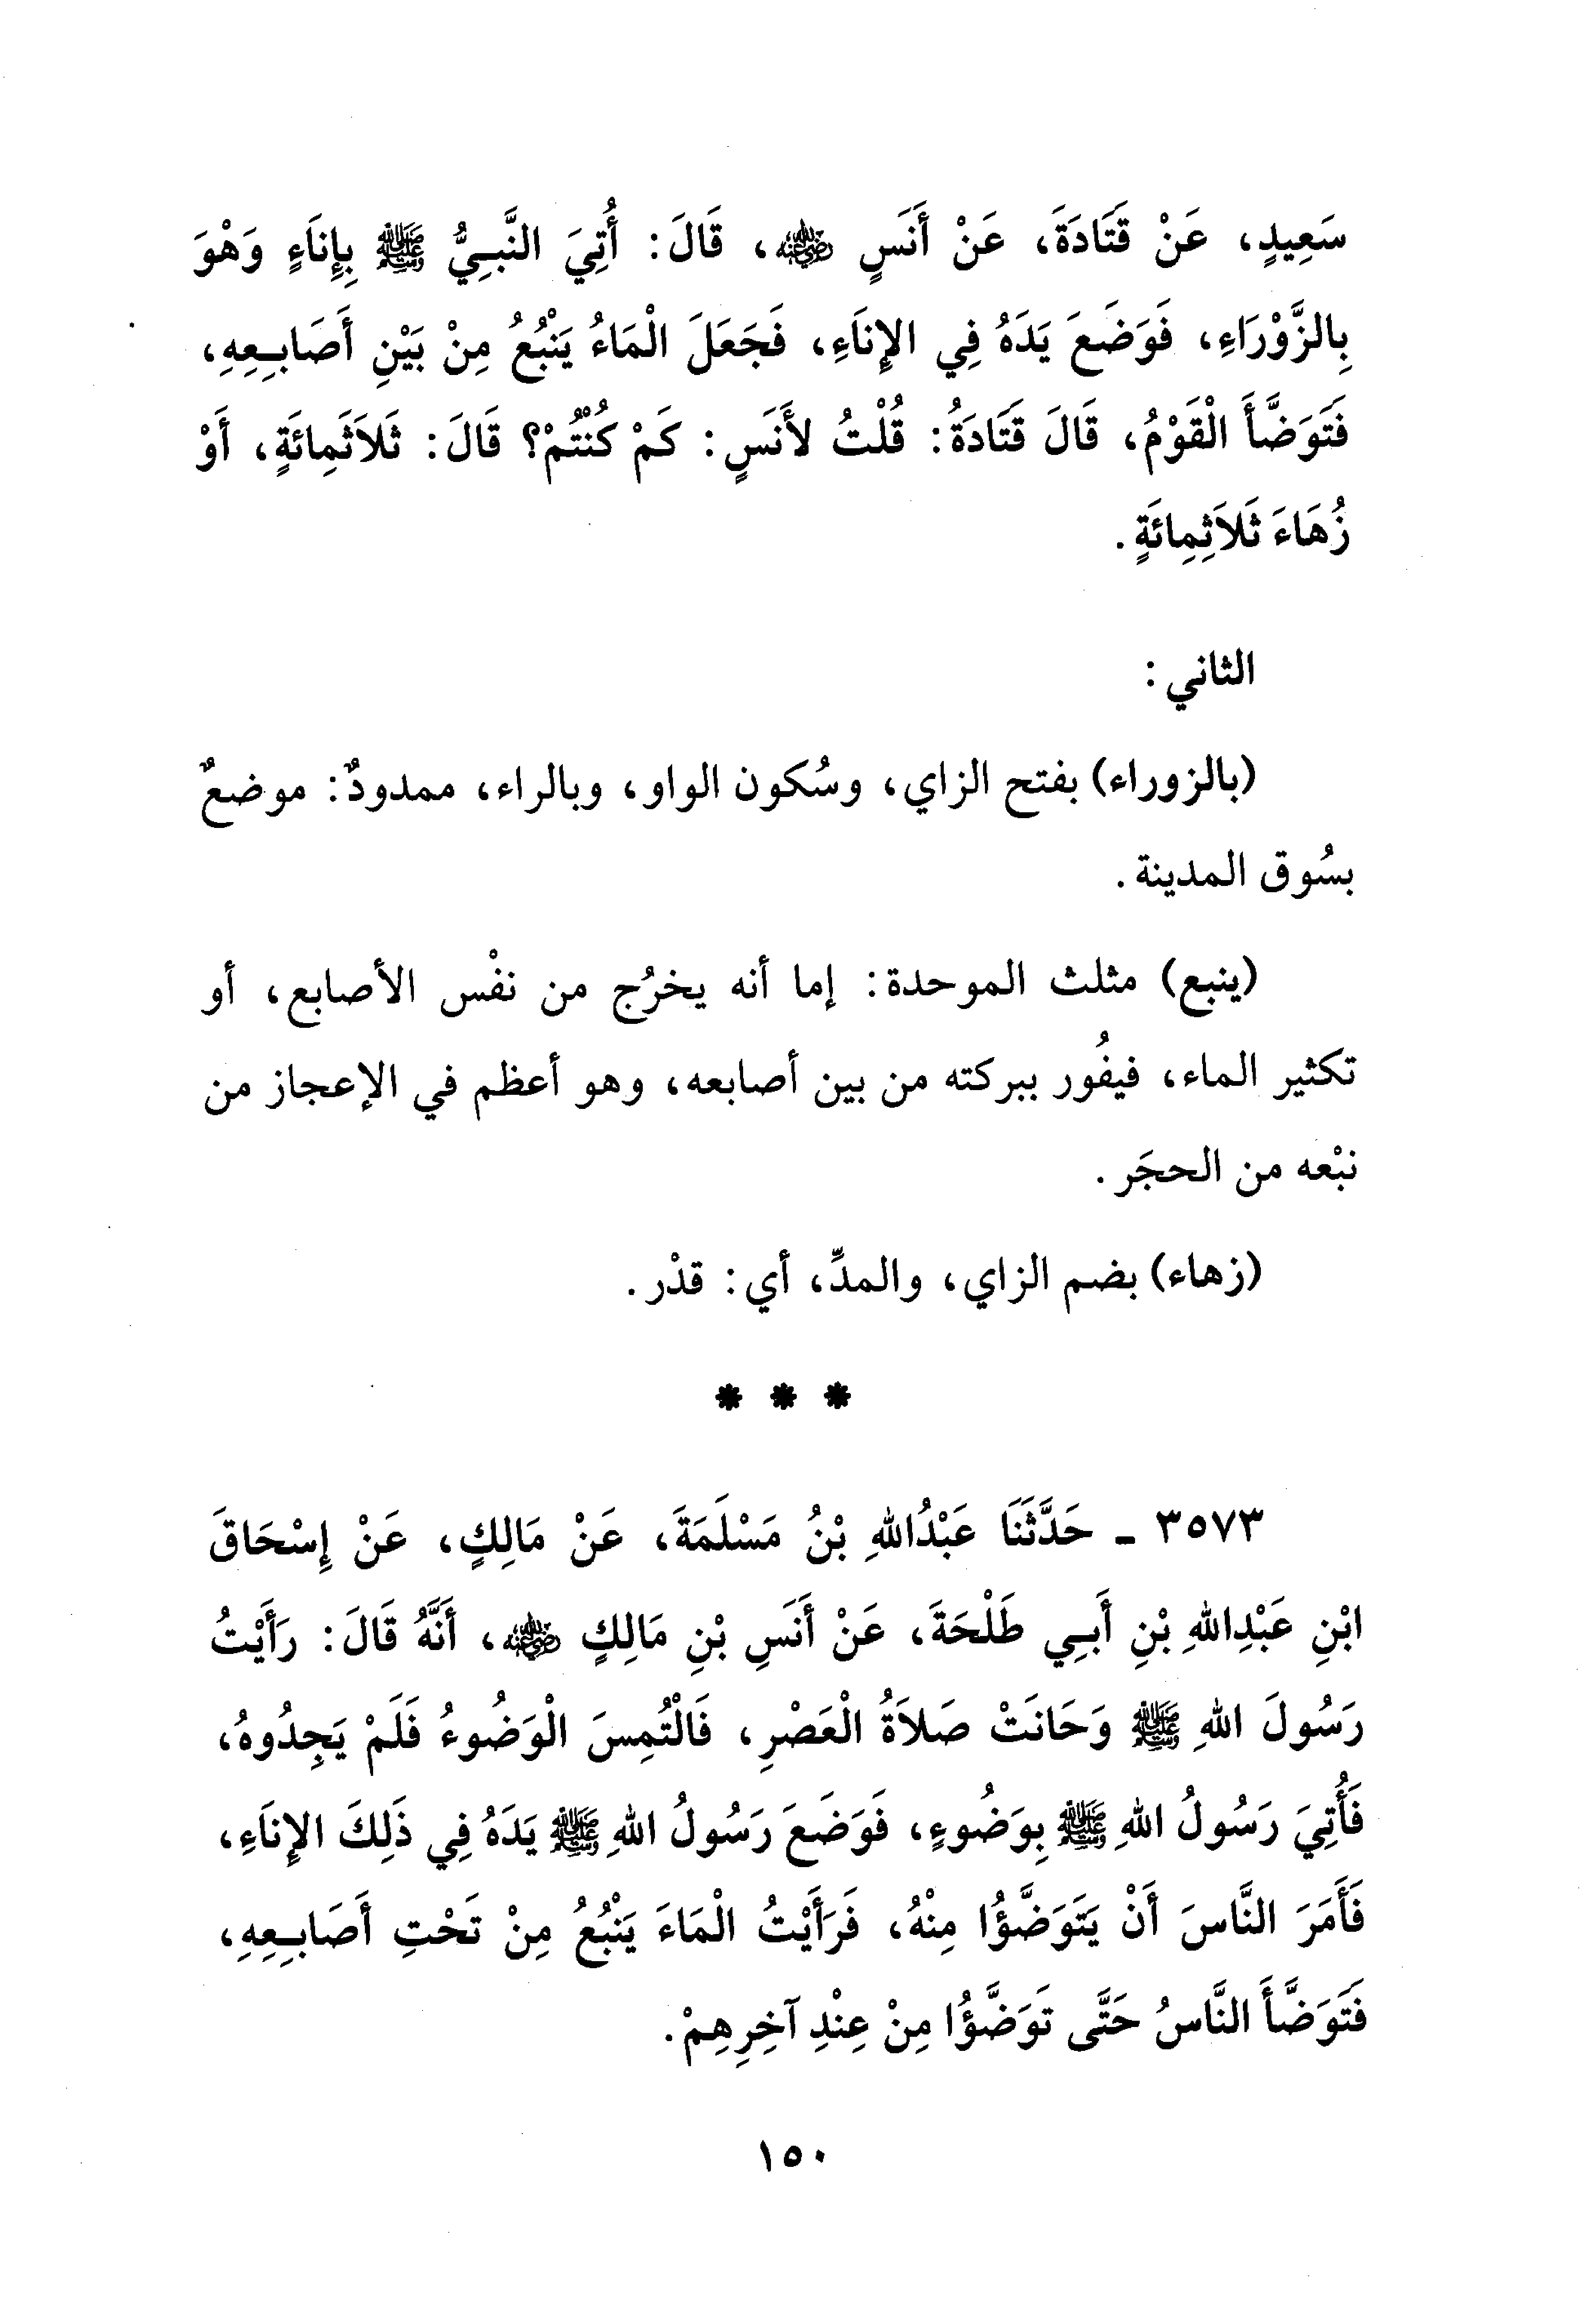 سَعِيدٍ، عَنْ قَتَادَةَ، عَنْ أَنَسٍ ﵁، قَالَ: أُتِيَ النَّبِيُّ ﷺ بِإِنَاءٍ وَهْوَ
بِالزَّوْرَاءِ، فَوَضَعَ يَدَهُ فِي الإِنَاءِ، فَجَعَلَ الْمَاءُ يَنْبُعُ مِنْ بَيْنِ أَصَابِعِهِ،
فَتَوَضَّأَ الْقَوْمُ، قَالَ قَتَادَةُ: قُلْتُ لأَنَسٍ: كَمْ كُنْتُمْ؟ قَالَ: ثَلاَثَمِائَةٍ، أَوْ
زُهَاءَ ثَلاَثِمِائَةٍ.
الثاني:
(بالزوراء) بفتح الزاي، وسُكون الواو، وبالراء، ممدودٌ: موضعٌ
بسُوق المدينة.
(ينبع) مثلث الموحدة: إما أنه يخرُج من نفْس الأصابع، أو
تكثير الماء، فيفُور ببركته من بين أصابعه، وهو أعظم في الإعجاز من
نبْعه من الحجَر.
(زهاء) بضم الزاي، والمدِّ، أي: قدْر.
* * *
٣٥٧٣ - حَدَّثَنَا عَبْدُاللهِ بْنُ مَسْلَمَةَ، عَنْ مَالِكٍ، عَنْ إِسْحَاقَ
ابْنِ عَبْدِاللهِ بْنِ أَبِي طَلْحَةَ، عَنْ أَنَسِ بْنِ مَالِكٍ ﵁، أَنَّهُ قَالَ: رَأَيْتُ
رَسُولَ اللهِ ﷺ وَحَانَتْ صَلاَةُ الْعَصْرِ، فَالْتُمِسَ الْوَضُوءُ فَلَمْ يَجِدُوهُ،
فَأُتِيَ رَسُولُ اللهِ ﷺ بِوَضُوءٍ، فَوَضَعَ رَسُولُ اللهِ ﷺ يَدَهُ فِي ذَلِكَ الإِنَاءِ،
فَأَمَرَ النَّاسَ أَنْ يَتَوَضَّؤُا مِنْهُ، فَرَأَيْتُ الْمَاءَ يَنْبُعُ مِنْ تَحْتِ أَصَابِعِهِ،
فَتَوَضَّأَ النَّاسُ حَتَّى تَوَضَّؤُا مِنْ عِنْدِ آخِرِهِمْ.
١٥٠